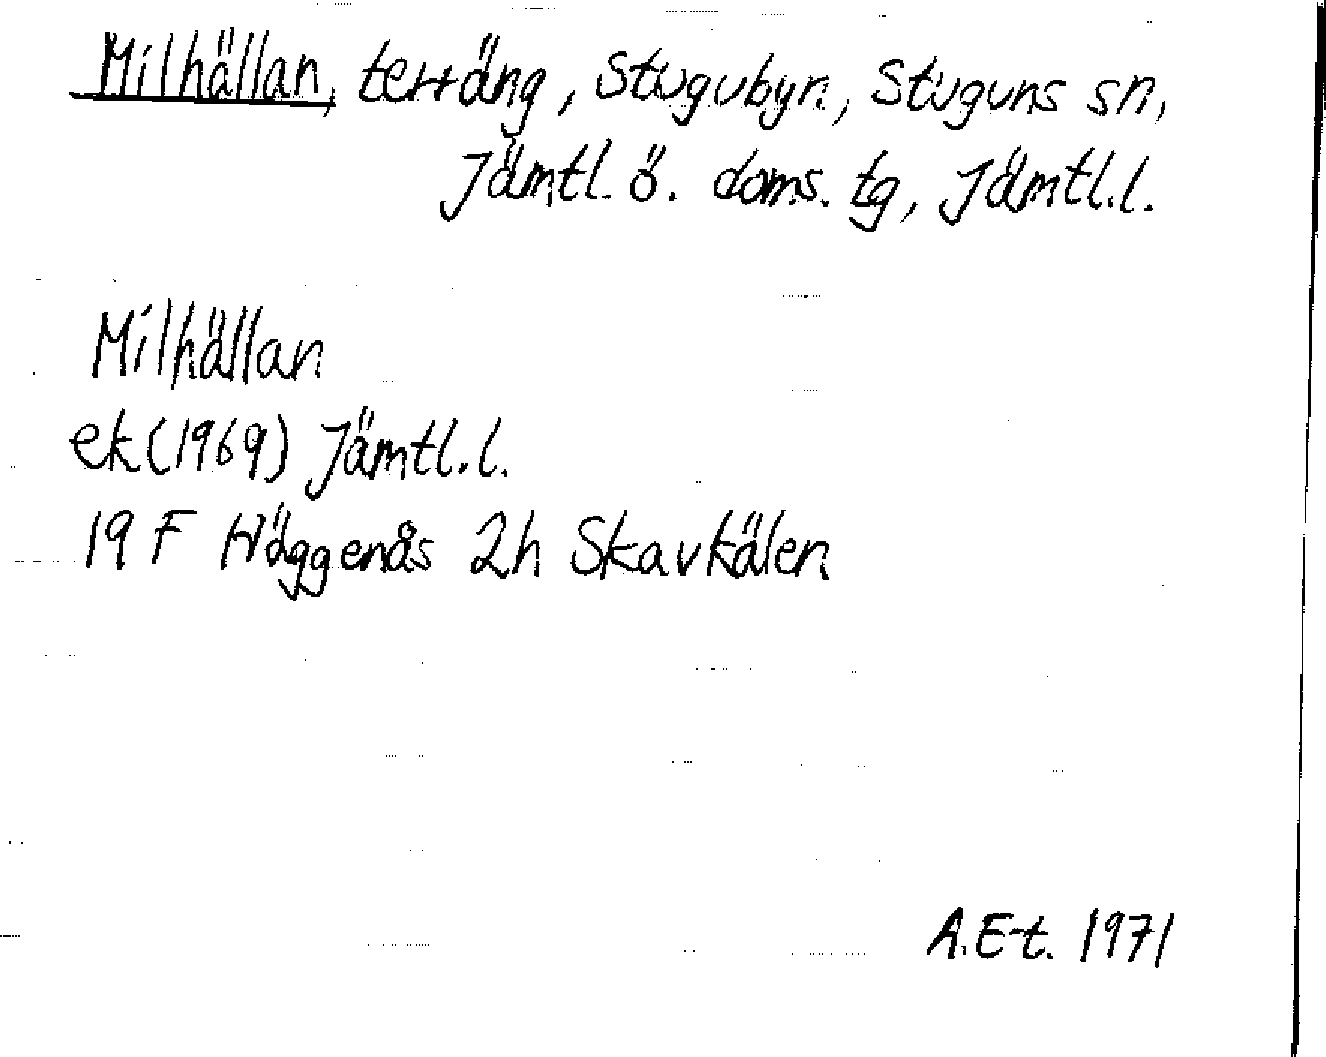 Milhällan, terräng, Stugubyn, Stuguns sn,
Jämtl. ö. doms. tg, Jämtl.l.
Milhällan
ek (1969) Jämtl.l.
19 F Häggenås 2h Skavkälen
A.E-t. 1971